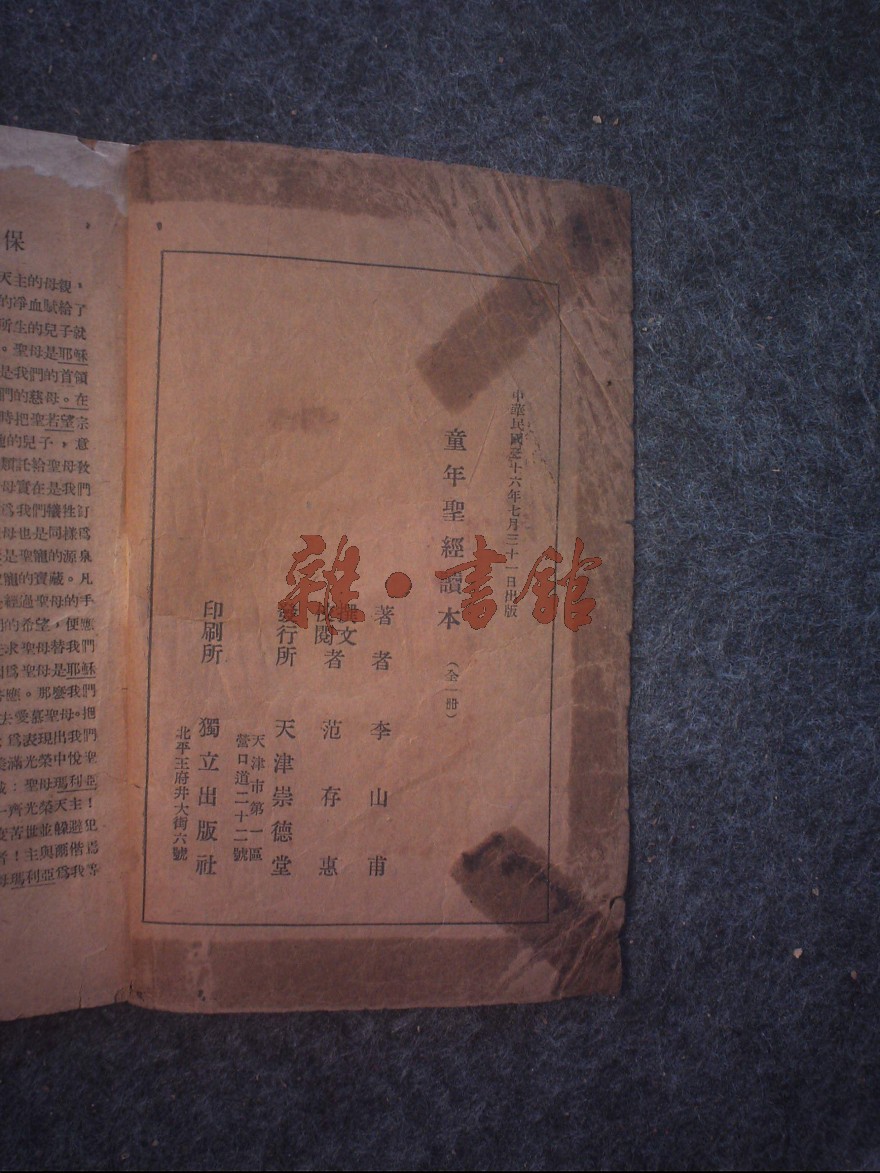 中華民國叁十六年七月三十一日出版
童年聖經讀本（全一册）
著者 李山甫
撰文
校閱者 范存惠
發行所 天津崇德堂
天津市第一區
營口道二十二號
印刷所 獨立出版社
北平王府井大街六號
保
天主的母親，
的淨血賦給了
所生的兒子就
。聖母是耶穌
是我們的首領
們的慈母。在
時把聖若望宗
的兒子，意
類託給聖母教
母實在是我們
爲我們犧牲訂
母也是同樣爲
是聖寵的源泉
寵的寶藏。凡
經過聖母的手
們的希望，便應
求聖母替我們
因爲聖母是耶穌
答應。那麼我們
去愛慕聖母。把
爲表現出我們
滿光榮中悅聖
：聖母瑪利亞
一齊光榮天主！
苦世並躲避犯
者！主與爾偕焉
母瑪利亞爲我等
雜·書館